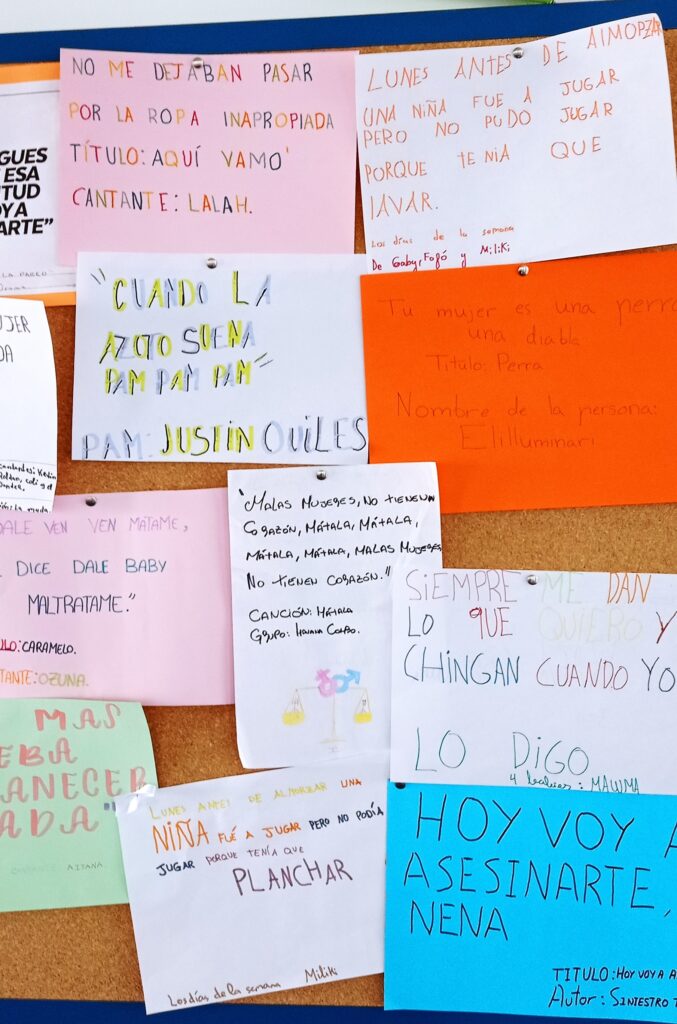 GUES
ESA
TUD
OY A
ARTE”
NO ME DEJABAN PASAR
POR LA ROPA INAPROPIADA
TÍTULO: AQUÍ VAMO'
CANTANTE: LALAH.
LUNES ANTES DE AlMOPZA
UNA NiÑA FUE A JUGAR
PERO NO PUDO JUGAR
PORQUE TENIA QUE
lAVAR.
Los días de la semana
De Gaby, Fofó y MiliKi
"CUANDO LA
AZOTO SUENA
PAM PAM PAM"
PAM: JUSTIN QUILES
Tu mujer es una perra
una diabla
Titulo: Perra
Nombre de la persona:
Elilluminari
UJER
DA
DALE VEN VEN MÁTAME,
DICE DALE BABY
MALTRATAME."
ULO: CARAMELO.
TANTE: OZUNA.
"MALAS MUJERES, NO TIENEN
CORAZÓN, MÁTALA, MÁTALA,
MÁTALA, MÁTALA, MALAS MUJERES
NO TIENEN CORAZÓN."
CANCIÓN: MÁTALA
GRUPO:
SiEMPRE ME DAN
LO QUE QUIERO Y
CHINGAN CUANDO YO
LO DIGO
4 babys: MALUMA
MAS
EBA
ANECER
ADA"
CANTANTE AITANA
LUNES ANTES DE ALMORZAR UNA
NIÑA FUÉ A JUGAR PERO NO PODÍA
JUGAR PORQUE TENÍA QUE
PLANCHAR
Los días de la semana Miliki
HOY VOY A
ASESINARTE,
NENA
TITULO: HOY VOY A A
Autor: SINIESTRO T